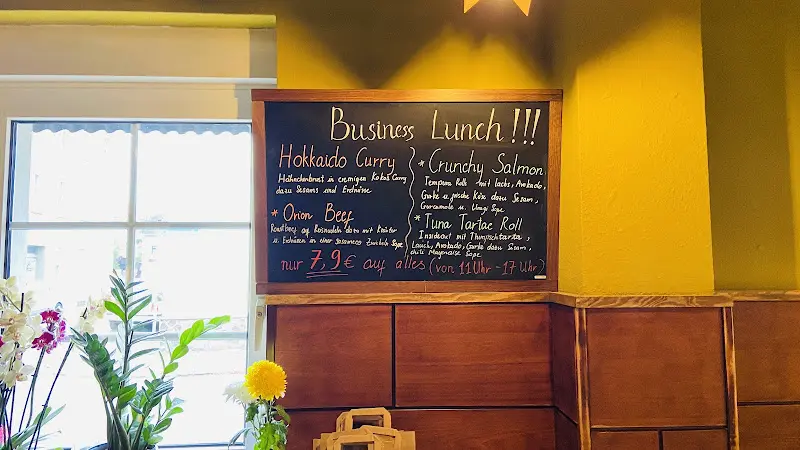 Business Lunch!!!
Hokkaido Curry
Hähnchenbrust in cremigen Kokos Curry
dazu Sesams und Erdnüsse
* Orion Beef
Roastbeef auf Reisnudeln dazu mit Kräuter
u. Erdnüssen in einer Zwiebeln Sope
* Crunchy Salmon
Tempura Rolls mit lachs, Avokado,
Gurke u. frische Käse dazu Sesam,
u. Unagi Sope
* Tuna Tartar Roll
Insideout mit Thunfischtartar,
Lauch, Avokado, Gurke dazu Sesam,
chili Mayonaise Sope
nur 7,9€ auf alles (von 11 Uhr - 17 Uhr)